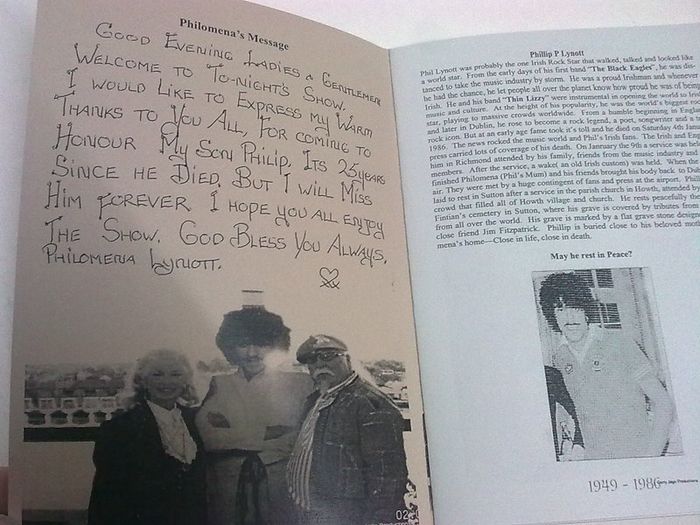 Philomena's Message
GOOD EVENING LADIES & GENTLEMEN
WELCOME TO TO-NIGHT'S SHOW.
I WOULD LIKE TO EXPRESS MY WARM
THANKS TO YOU ALL, FOR COMING TO
HONOUR MY SON PHILIP. ITS 25 YEARS
SINCE HE DIED, BUT I WILL MISS
HIM FOREVER I HOPE YOU ALL ENJOY
THE SHOW. GOD BLESS YOU ALWAYS.
PHILOMENA LYNOTT.
02
Phillip P Lynott
Phil Lynott was probably the one Irish Rock Star that walked, talked and looked like
a world star. From the early days of his first band "The Black Eagles", he was des-
tanced to take the music industry by storm. He was a proud Irishman and whenever
he had the chance, he let people all over the planet know how proud he was of being
Irish. He and his band "Thin Lizzy" were instrumental in opening the world to Irish
music and culture. At the height of his popularity, he was the world's biggest
star, playing to massive crowds worldwide. From a humble beginning in
and later in Dublin, he rose to become a rock legend, a poet, songwriter and a
rock icon. But at an early age fame took it's toll and he died on Saturday 4th
1986. The news rocked the music world and Phil's Irish fans. The Irish and
press carried lots of coverage of his death. On January the 9th a service was
him in Richmond attended by his family, friends from the music industry and
members. After the service, a wake( an old Irish custom) was held. When
finished Philomena (Phil's Mum) and his friends brought his body back to
air. They were met by a huge contingent of fans and press at the airport.
laid to rest in Sutton after a service in the parish church in Howth, attended
crowd that filled all of Howth village and church. He rests peacefully
Fintian's cemetery in Sutton, where his grave is covered by tributes from
from all over the world. His grave is marked by a flat grave stone
close friend Jim Fitzpatrick. Phillip is buried close to his beloved
mena's home—Close in life, close in death.
May he rest in Peace?
1949 - 1986